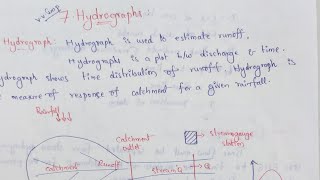 7. Hydrographs
Hydrograph: Hydrograph is used to estimate runoff.
Hydrographs is a plot b/w discharge & time.
Hydrograph shows time distribution of runoff. Hydrograph is
measure of response of catchment for a given rainfall.
Rainfall
catchment
outlet
streamgauge
station
catchment
Runoff
stream Q
Q